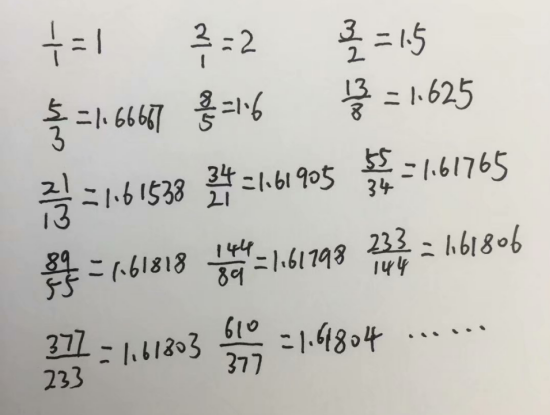 1/1 = 1 2/1 = 2 3/2 = 1.5
5/3 = 1.66667 8/5 = 1.6 13/8 = 1.625
21/13 = 1.61538 34/21 = 1.61905 55/34 = 1.61765
89/55 = 1.61818 144/89 = 1.61798 233/144 = 1.61806
377/233 = 1.61803 610/377 = 1.61804 ······